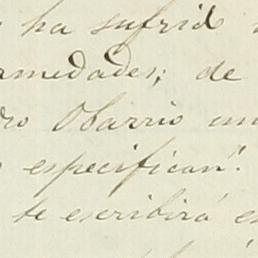 ha sufrid
rmedades; de
ro Obarrio un
especifican".
te escribirá e